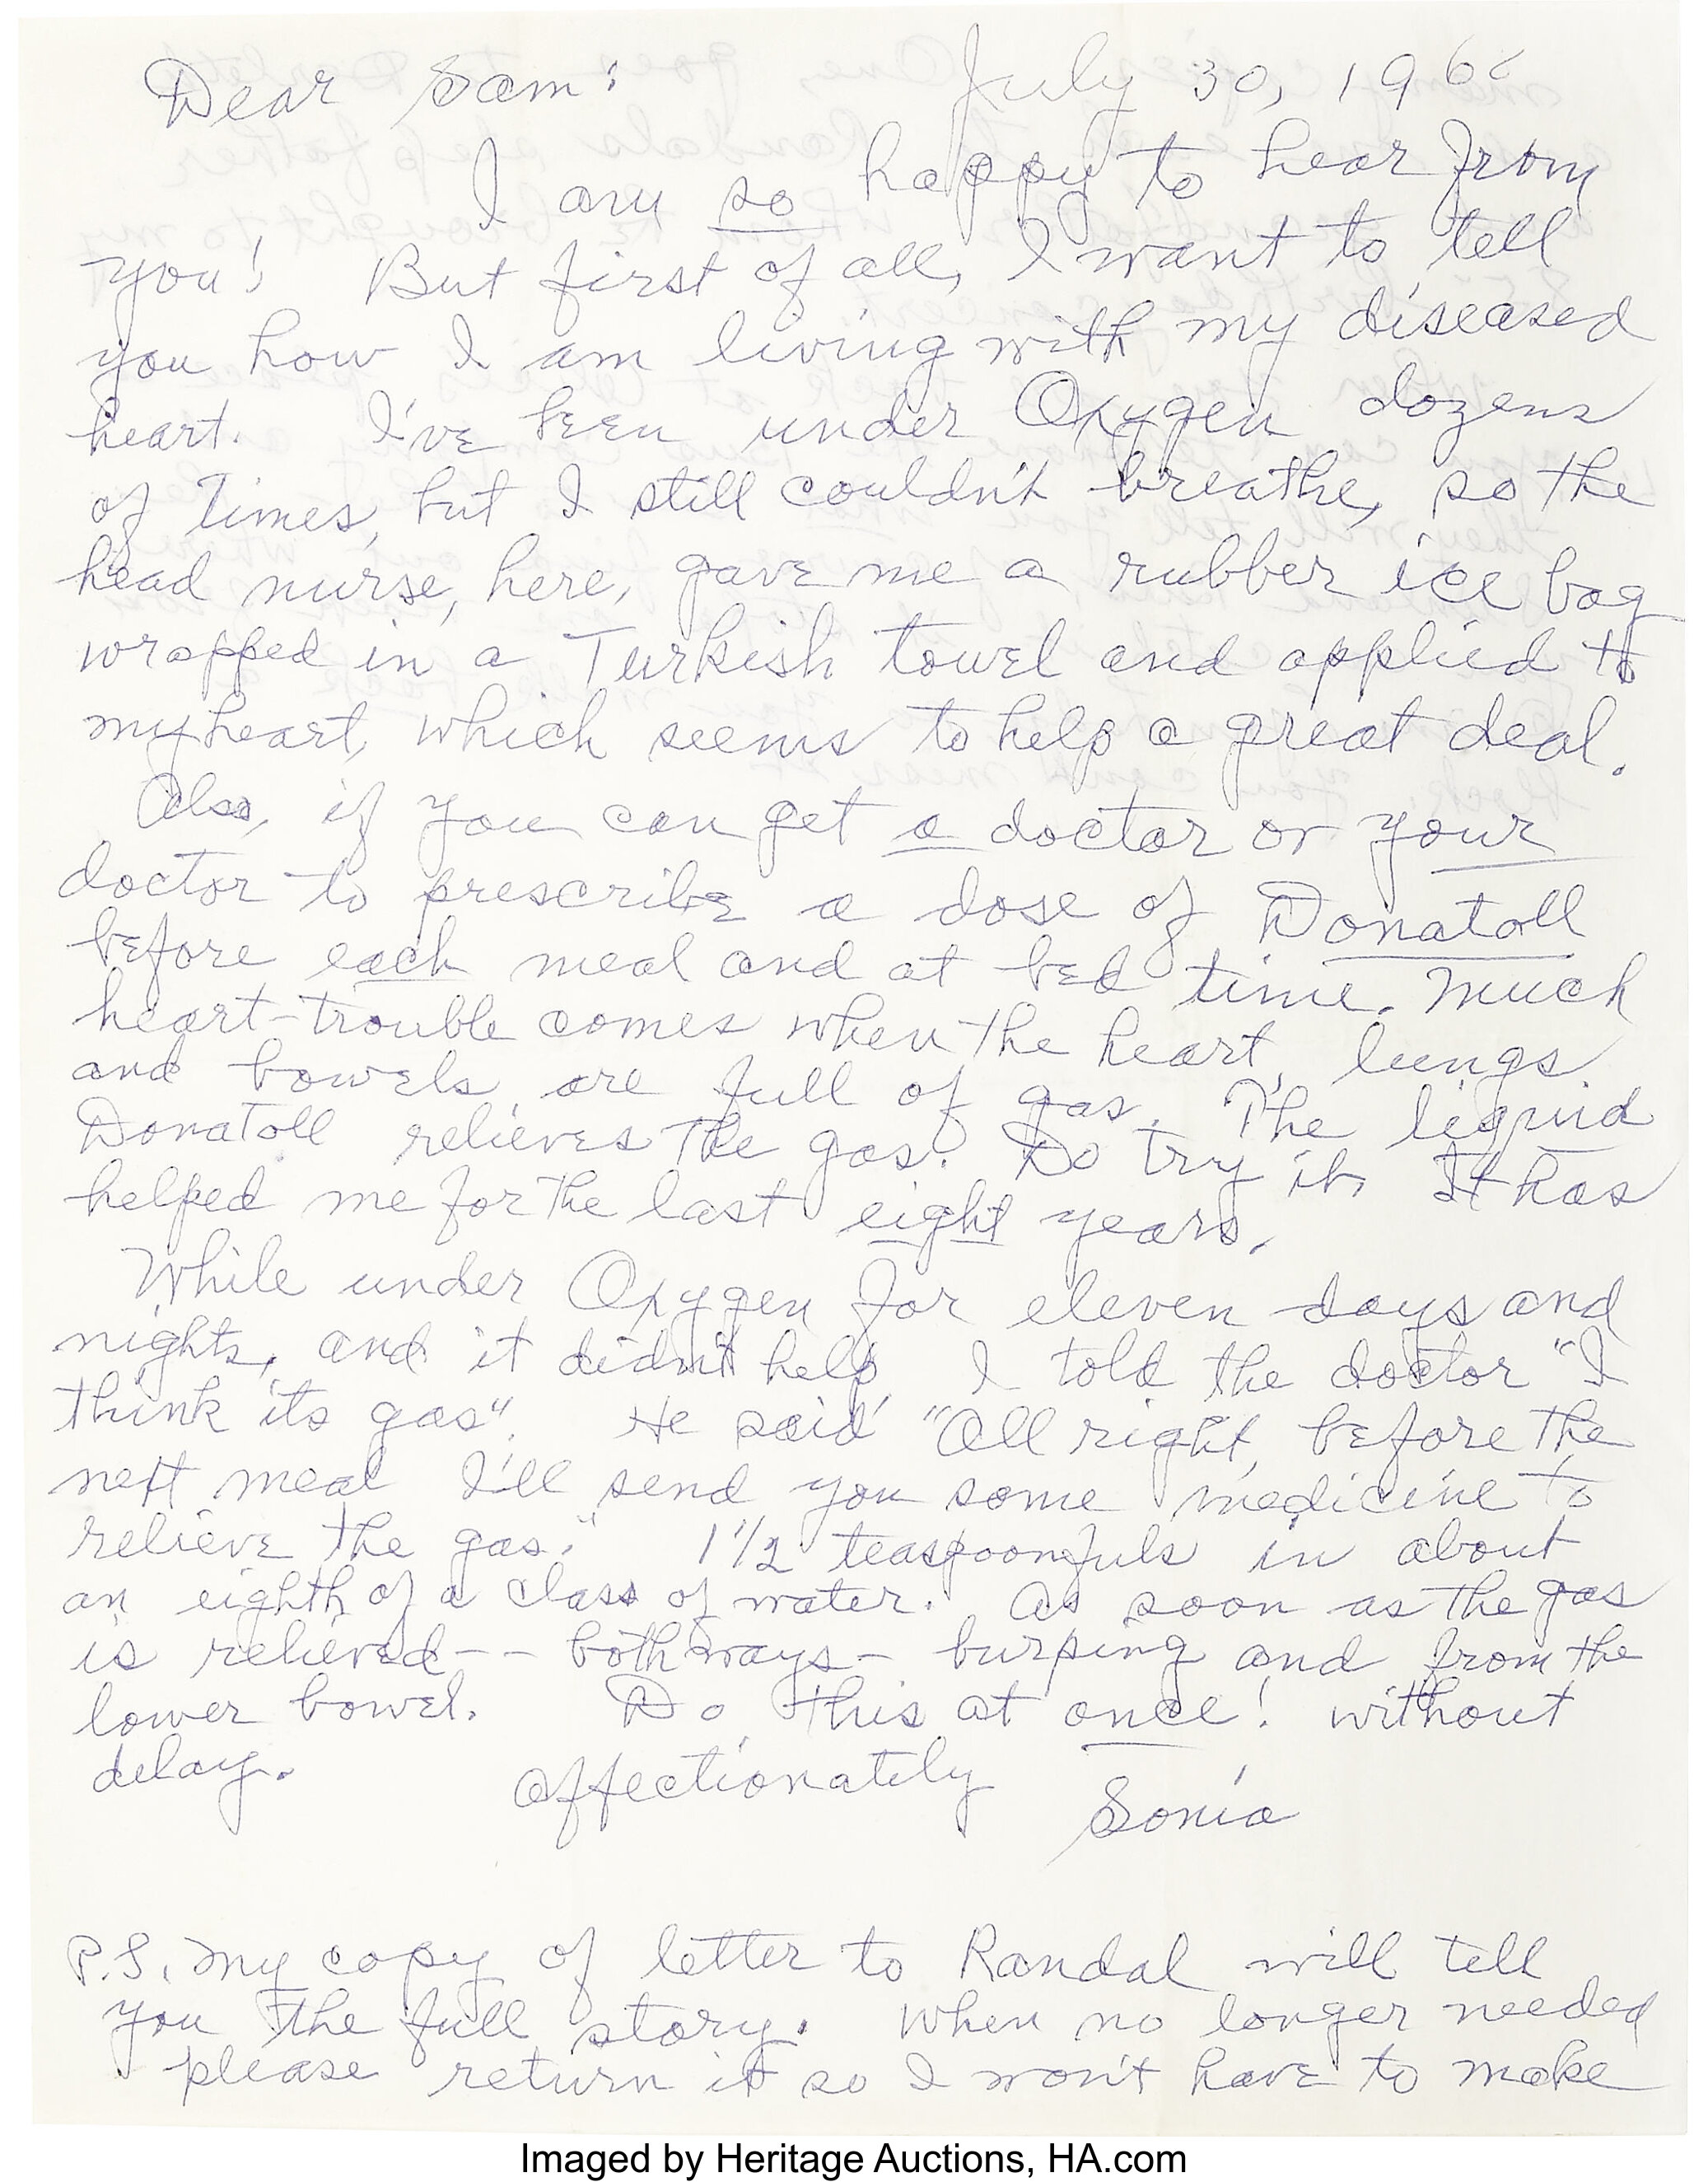 Dear Sam: July 30, 196
I am so happy to hear from
you! But first of all, I want to tell
you how I am living with my diseased
heart. I've been under Oxygen dozens
of Times, but I still couldn't breathe, so the
head nurse, here, gave me a rubber ice bag
wrapped in a Turkish towel and applied to
my heart, which seems to help a great deal.
Also, if you can get a doctor or your
doctor to prescribe a dose of Donatoll
before each meal and at bed time. Much
heart-trouble comes when the heart, lungs
and bowels are full of gas. The liquid
Donatoll relieves the gas. Do try it. It has
helped me for the last eight years.
While under Oxygen for eleven days and
nights, and it didn't help, I told the doctor "I
think its gas". He said "All right, before the
next meal I'll send you some medicine to
relieve the gas." 1 1/2 teaspoonfuls in about
an eighth of a class of water. As soon as the gas
is relieved-- both ways- burping and from the
lower bowel. Do this at once! without
delay. Affectionately
Sonia
P.S. My copy of letter to Randal will tell
you the full story. When no longer needed
please return it so I won't have to make
Imaged by Heritage Auctions, HA.com